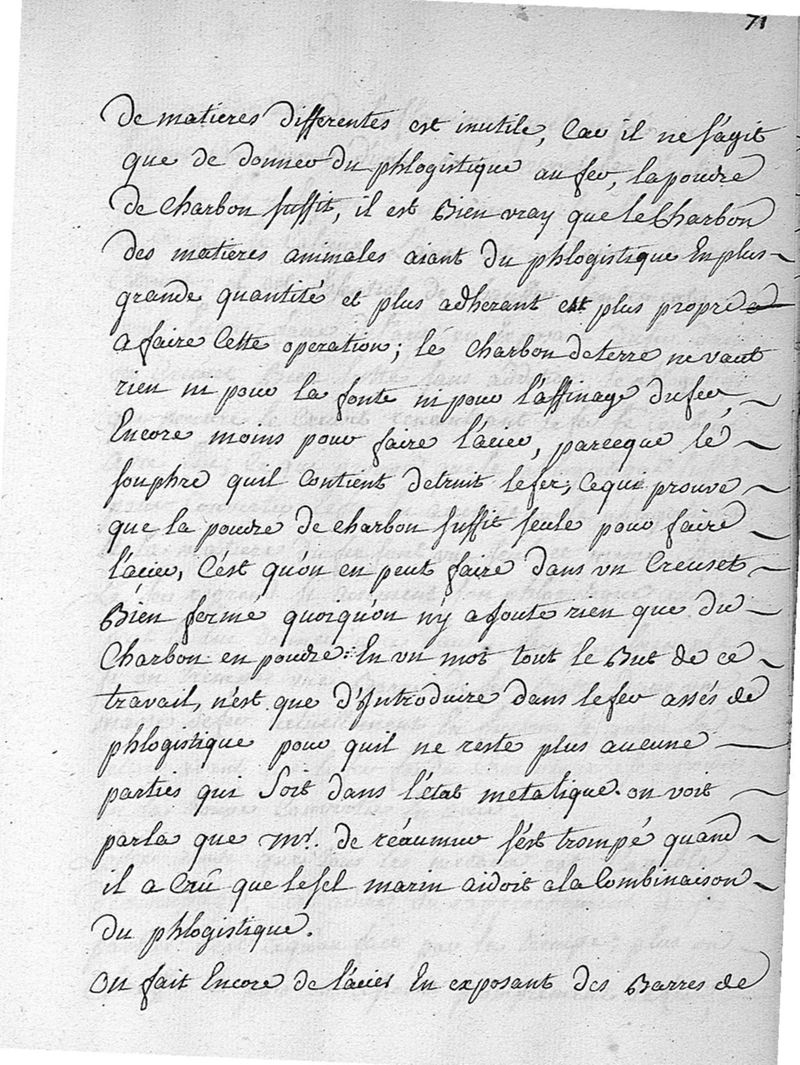 71
de matieres differentes est inutile, Car il ne s'agit
que de donner du phlogistique au fer, la poudre
de Charbon suffit, il est Bien vray que le Charbon
des matieres animales aiant du phlogistique En plus
grande quantité et plus adherant est plus propre
a faire Cette operation; le Charbon de terre ne vaut
rien ni pour la fonte ni pour l'affinage du fer,
Encore moins pour faire l'acier, parceque le
souphre quil Contient detruit le fer; Ce qui prouve
que la poudre de Charbon suffit seule pour faire
l'acier, C'est qu'on en peut faire dans un Creuset
Bien fermé quoiqu'on n'y ajoute rien que du
Charbon en poudre: En un mot tout le But de ce
travail, n'est que d'Introduire dans le fer assés de
phlogistique pour quil ne reste plus aucune
parties qui Soit dans l'état metalique. on voit
par la que Mr. de réaumur s'est trompé quand
il a Crû que le sel marin aidoit a la Combinaison
du phlogistique.
On fait Encore de l'acier En exposant des Barres de